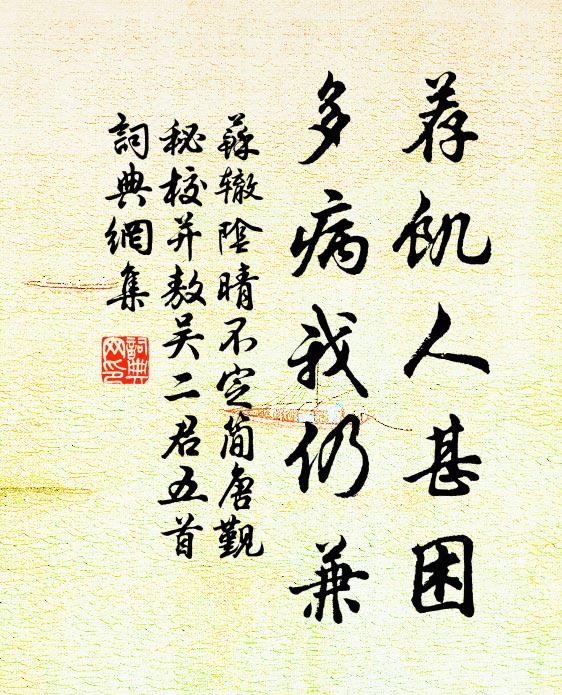 荐飢人甚困
多病我仍兼
蘇辙陰晴不定简唐觐
秘校并敖吴二君五首
詞典網集
詞典
网印